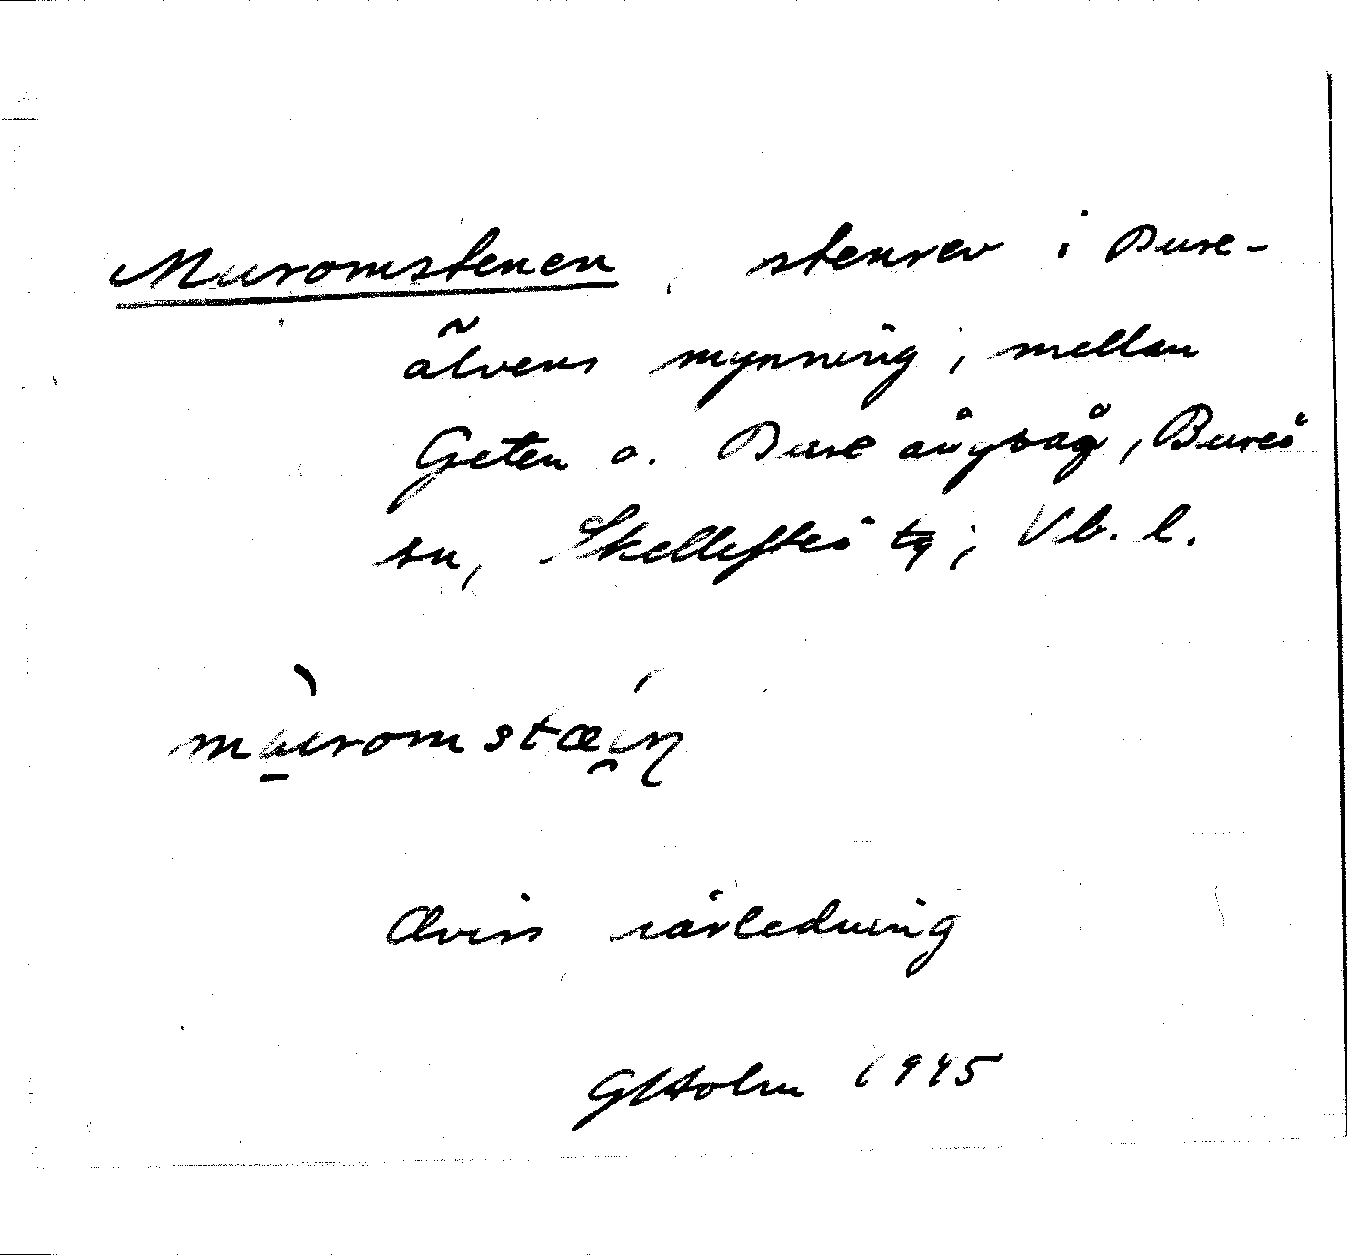 Muromstenen, stenrev i Bure-
älvens mynning, mellan
Geten o. Bure ångsåg, Bureå
sn, Skellefteå tg, Vb. l.
mùromstæ̀i̯n
Oviss härledning
GHolm 1945